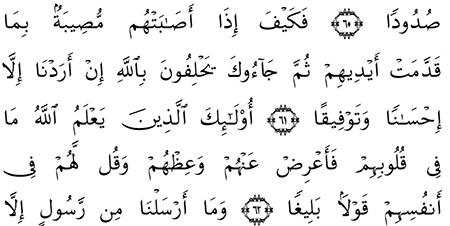 صُدُودًا ٦٠ فَكَيْفَ إِذَا أَصَٰبَتْهُم مُّصِيبَةٌۢ بِمَا
قَدَّمَتْ أَيْدِيهِمْ ثُمَّ جَآءُوكَ يَحْلِفُونَ بِٱللَّهِ إِنْ أَرَدْنَا إِلَّآ
إِحْسَٰنًا وَتَوْفِيقًا ٦١ أُوْلَٰٓئِكَ ٱلَّذِينَ يَعْلَمُ ٱللَّهُ مَا
فِى قُلُوبِهِمْ فَأَعْرِضْ عَنْهُمْ وَعِظْهُمْ وَقُل لَّهُمْ فِىٓ
أَنفُسِهِمْ قَوْلًۢا بَلِيغًا ٦٢ وَمَآ أَرْسَلْنَا مِن رَّسُولٍ إِلَّا